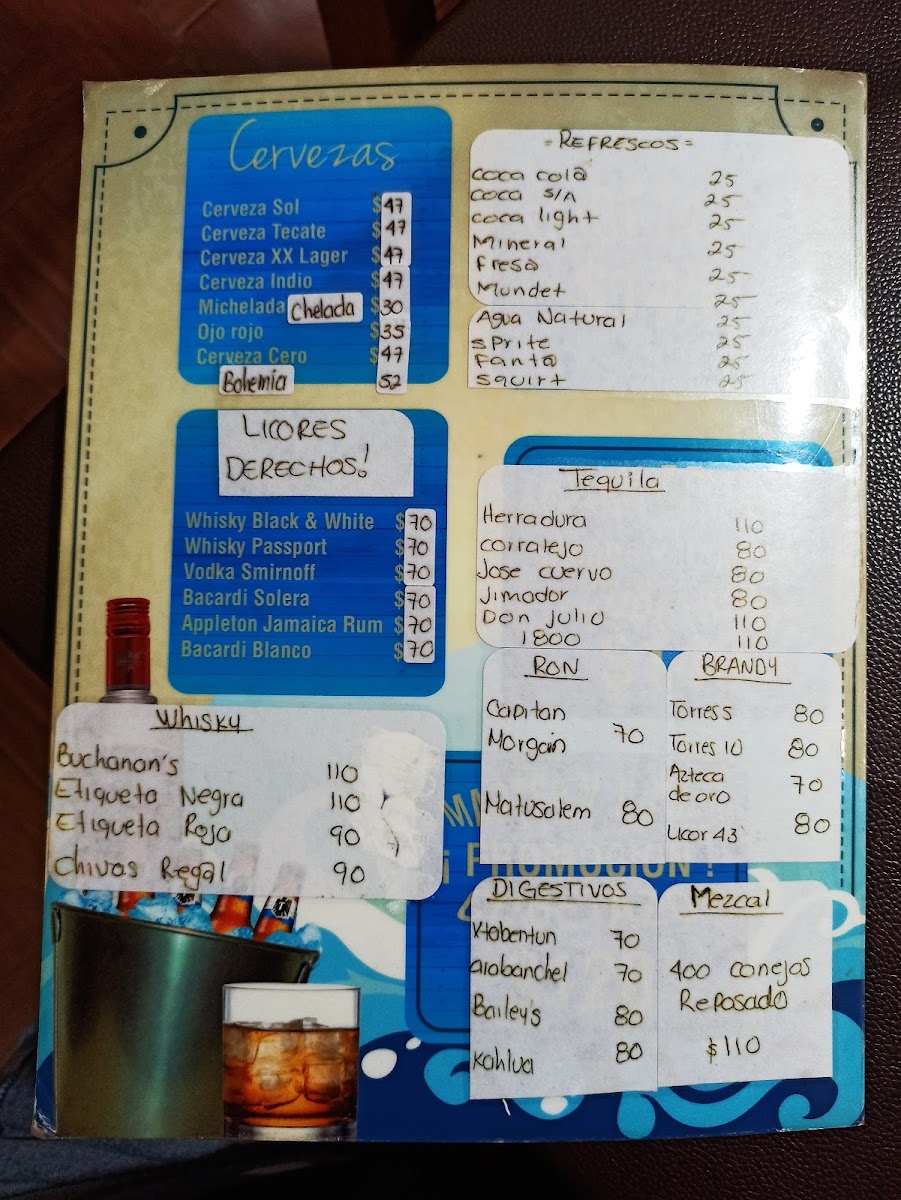 Cervezas
Cerveza Sol $47
Cerveza Tecate $47
Cerveza XX Lager $47
Cerveza Indio $47
Michelada Chelada $30
Ojo rojo $35
Cerveza Cero $47
Bohemia 52
= REFRESCOS =
coca cola 25
coca s/A 25
coca light 25
Mineral 25
Fresa 25
Mundet 25
Agua Natural 25
sprite 25
Fanta 25
squirt 25
LICORES
DERECHOS!
Whisky Black & White $70
Whisky Passport $70
Vodka Smirnoff $70
Bacardi Solera $70
Appleton Jamaica Rum $70
Bacardi Blanco $70
Tequila
Herradura 110
corralejo 80
Jose cuervo 80
Jimador 80
Don Julio 110
1800 110
Whisky
Buchanan's 110
Etiqueta Negra 110
Etiqueta Roja 90
Chivas Regal 90
RON
Capitan
Morgan 70
Matusalem 80
BRANDY
Torres 5 80
Torres 10 80
Azteca
de oro 70
Licor 43 80
¡ PROMOCIÓN !
DIGESTIVOS
Xtabentun 70
arabanchel 70
Bailey's 80
Kahlua 80
Mezcal
400 conejos
Reposado
$110